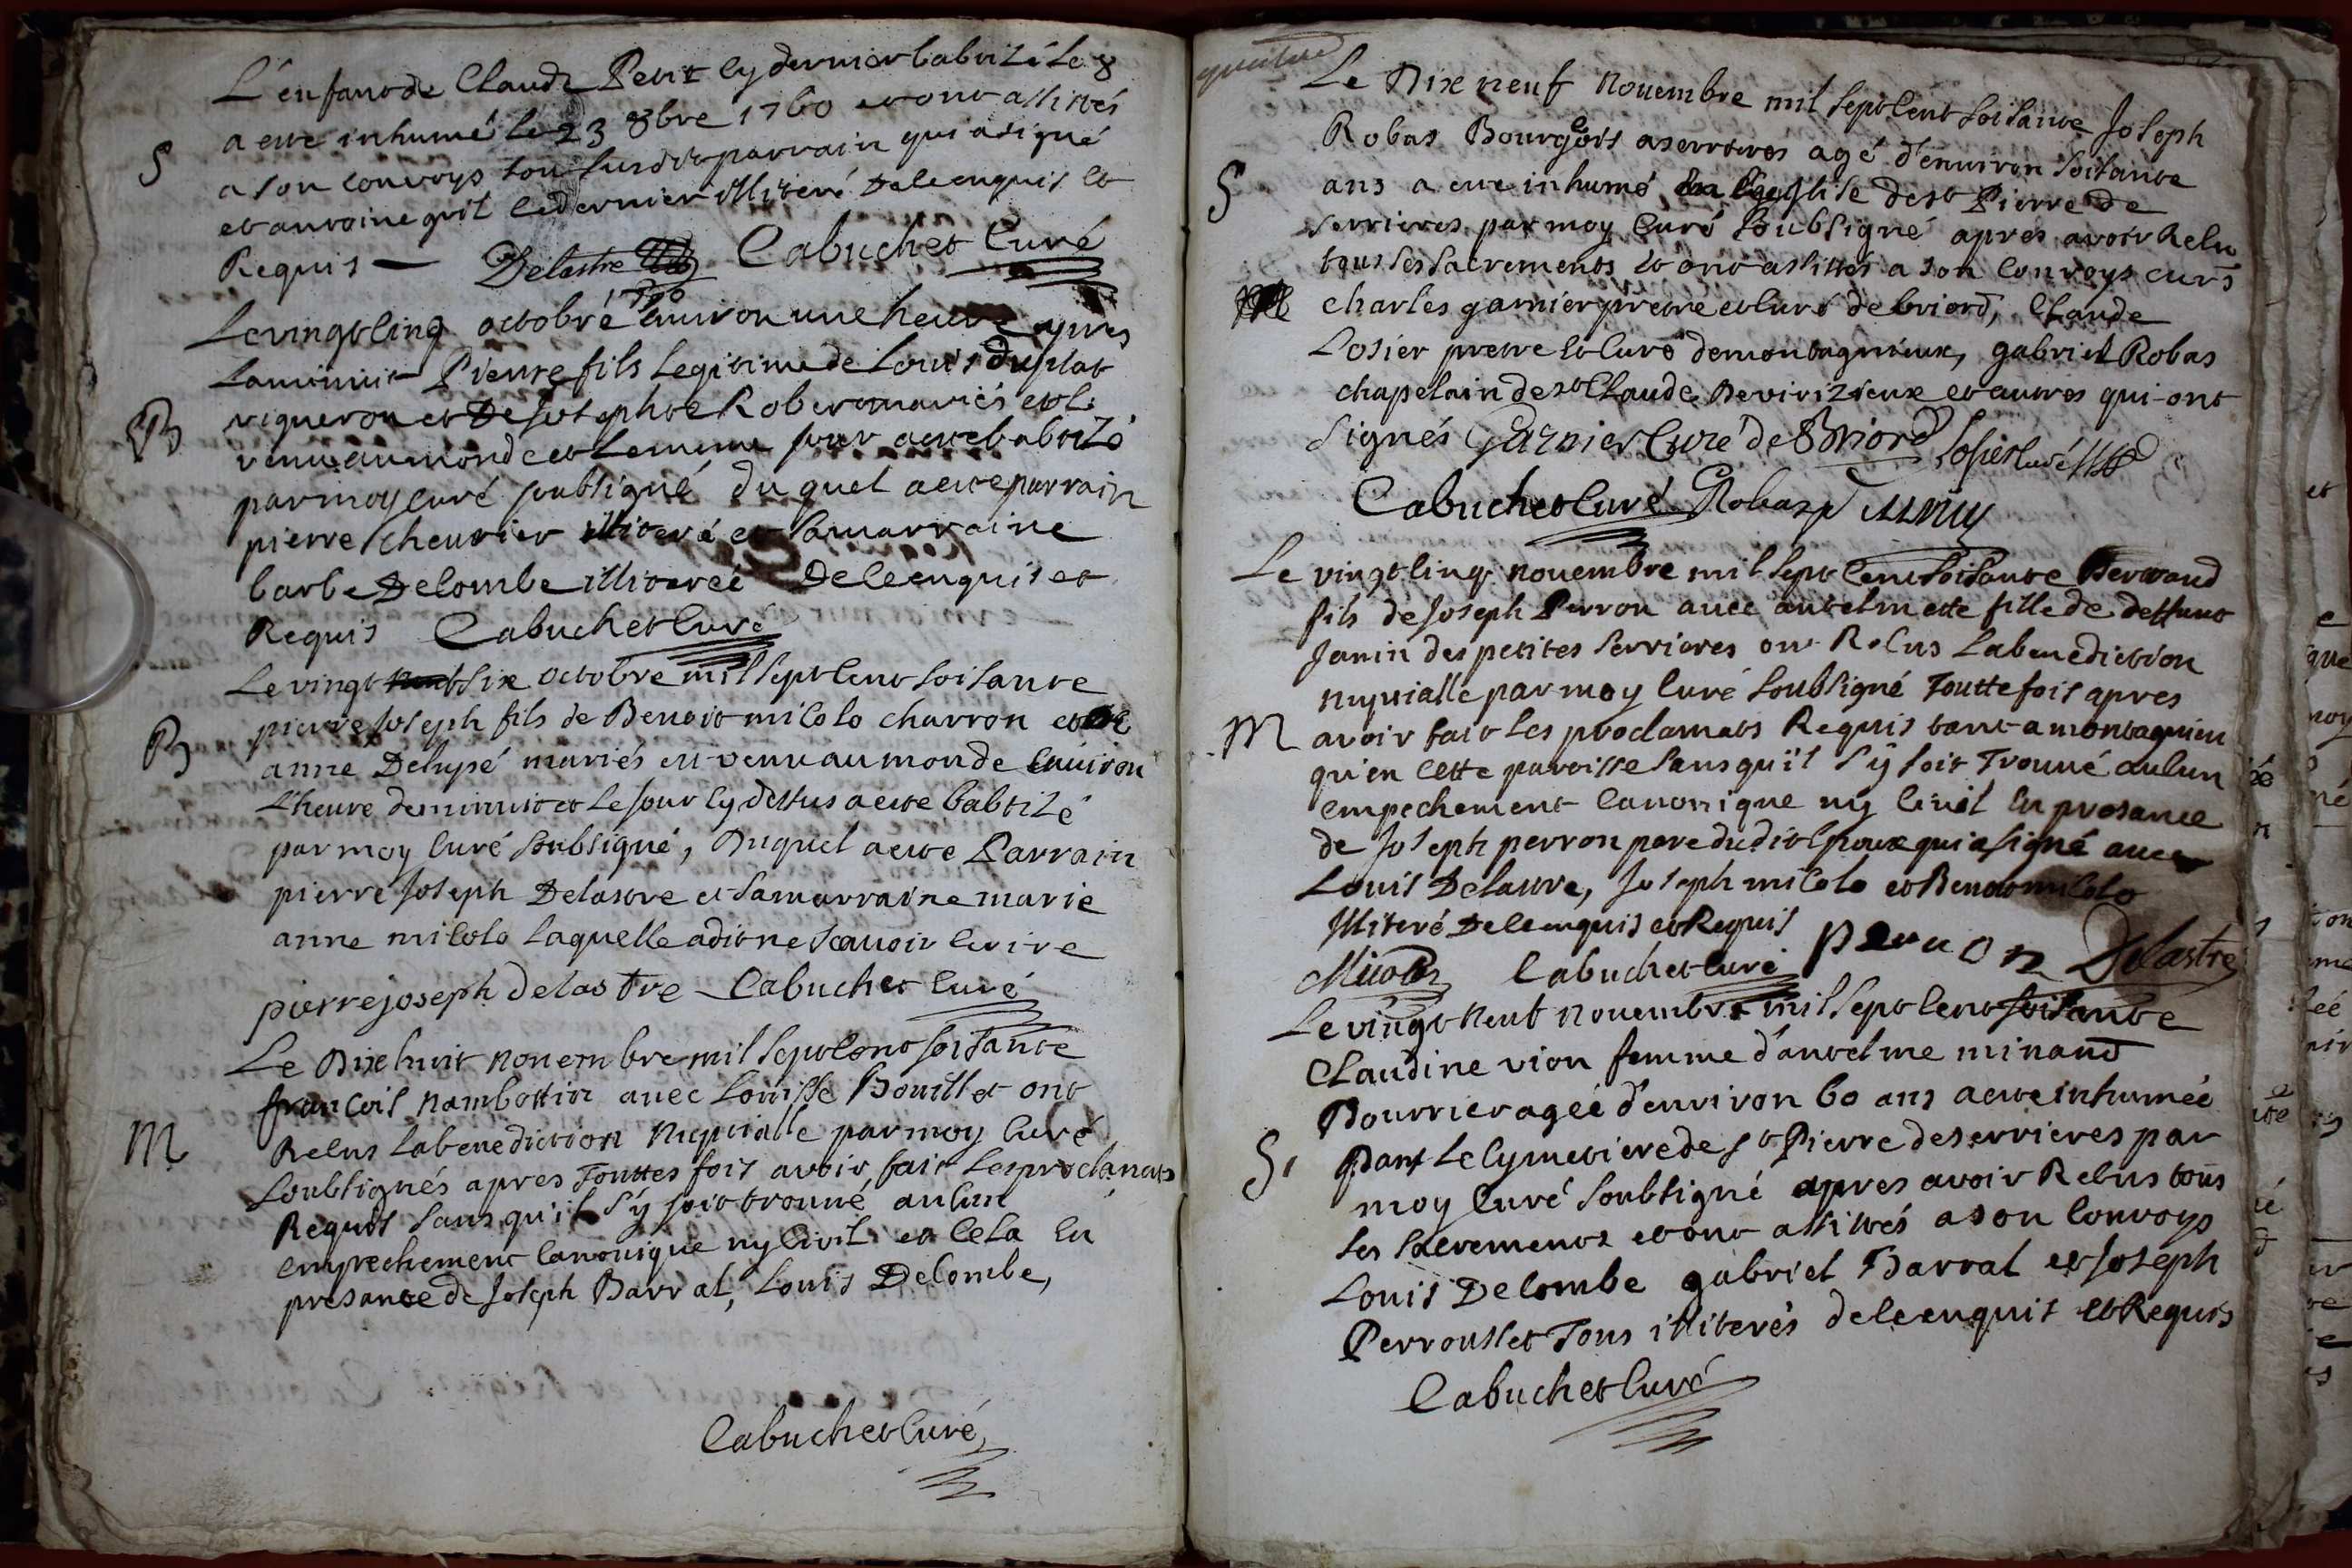 L'enfant de Claude Petit cy dernier babtisé le 8
S a eté inhumé le 23 8bre 1760 et ont assistés
a son convoys son susdit parrain qui a signé
et antoine grit ce dernier illiteré de ce enquis et
Requis — Delastre Cabuchet Curé
Le vingt cinq octobre 1760 environ une heure apres
la minuit Pierre fils legitime de Louis Duplat
B vigneron et de Josephte Robert mariés est
venu au monde et le meme jour a eté babtizé
par moy curé soubsigné du quel a eté parrain
pierre cheurier illiteré et sa marraine
barbe Delombe illiterée De ce enquis et
Requis Cabuchet Curé
Le vingt neuf six octobre mil sept cent soisante
pierre Joseph fils de Benoit micolo charron et de
B anne Delupé mariés est venu au monde environ
l'heure de minuit et le jour cy dessus a eté babtizé
par moy Curé soubsigné, Duquel a eté Parrain
pierre Joseph Delastre et sa marraine marie
anne micolo laquelle a dit ne scavoir écrire
pierre joseph delastre Cabuchet Curé
Le Dixhuit novembre mil sept cent soisante
francois nambottin avec Louisse Bouillet ont
M Recus la benediction nuptialle par moy curé
soubsignés apres Touttes fois avoir fait les proclamats
Requis sans qu'il s'y soit trouué aucun
empechement canonique ny civil et cela en
presante de Joseph Barral, Louis Delombe,
Cabuchet Curé
Le Dixneuf Novembre mil sept cent soisante Joseph
Robas Bourgeois a serrieres agé d'environ soisante
S ans a eté inhumé en l'eglise de st Pierre de
serrieres par moy Curé soubsigné apres avoir Recu
tous ses sacrements et ont assistés a son convoys curs
charles garnier pretre et curé de briord, Claude
Losier pretre et curé de montagnieux, gabriel Robas
chapelain de st Claude de virizieux et autres qui ont
signés Garnier Curé de Briord Losier curé
Cabuchet Curé Robas
Le vingt cinq novembre mil sept cent soisante Bertrand
fils de Joseph Perron avec antelmette fille de deffunt
Janin des petites serrieres ont Recus la benediction
nuptialle par moy Curé soubsigné Touttefois apres
M avoir fait les proclamats Requis tant a montagnieu
qu'en cette paroisse sans qu'il s'y soit Trouué aucun
empechement canonique ny civil en presance
de Joseph perron pere dudit epoux qui a signé avec
Louis Delastre, Joseph micolo et Benoit micolo
Illiteré De ce enquis et Requis perron Delastre
Micolo Cabuchet Curé
Le vingt neuf novembre mil sept cent soisante
Claudine vion femme d'antelme minand
Bourrier agée d'environ 60 ans a eté inhumée
S. Dans le cymetiere de st Pierre de serrieres par
moy Curé soubsigné apres avoir Recus tous
ses sacrements et ont assistés a son convoys
Louis Delombe gabriel Barral et Joseph
Perrousset Tous illiterés de ce enquis et Requis
Cabuchet Curé